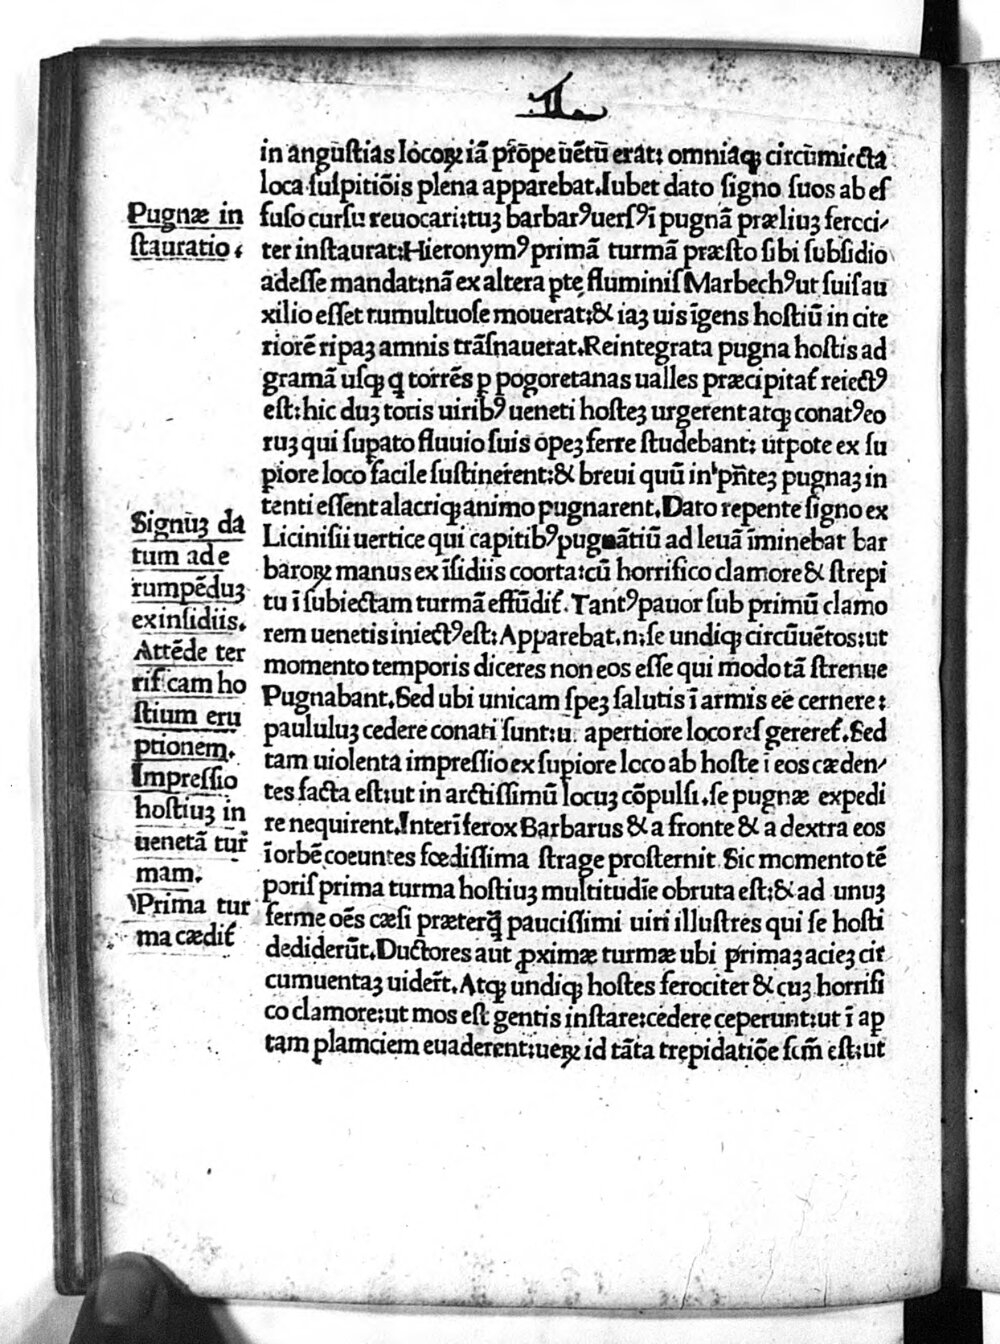 in angustias locoꝝ iā ꝓ̄pe uētū erat: omniaqꝫ circūmiecta
loca suspitiōis plena apparebat. Iubet dato signo suos ab ef
fuso cursu reuocari: tuꝫ barbarꝰ uersꝰ ī pugnā præliuꝫ feroci⸗
ter instaurat: Hieronymꝰ primā turmā præsto sibi subsidio
adesse mandat: nā ex altera ꝑte fluminis Marbechꝰ ut suis au
xilio esset tumultuose mouerat: & iaꝫ uis īgens hostiū in cite
riorē ripaꝫ amnis trāsnauerat. Reintegrata pugna hostis ad
gramā usqꝫ q torrēs ꝑ pogoretanas ualles præcipitat̄ reiectꝰ
est: hic duꝫ totis uiribꝰ ueneti hosteꝫ urgerent atqꝫ conatꝰ eo
ruꝫ qui suꝑato fluuio suis opeꝫ ferre studebant: utpote ex su
ꝑiore loco facile sustinerent: & breui quū inꞌ pñteꝫ pugnaꝫ in
tenti essent alacriqꝫ animo pugnarent. Dato repente signo ex
Licinisii uertice qui capitibꝰ pugnātiū ad leuā īminebat bar
baroꝝ manus ex īsidiis coorta: cū horrifico clamore & strepi
tu ī subiectam turmā effūdit̄. Tantꝰ pauor sub primū clamo
rem uenetis iniectꝰ est: Apparebat. n; se undiqꝫ circūuētos: ut
momento temporis diceres non eos esse qui modo tā strenue
Pugnabant. Sed ubi unicam speꝫ salutis ī armis eē cernere:
paululuꝫ cedere conati sunt: u apertiore loco res gereret̄. Sed
tam uiolenta impressio ex suꝑiore loco ab hoste ī eos cæden⸗
tes facta est: ut in arctissimū locuꝫ cōpulsi. se pugnæ expedi
re nequirent. Interī ferox Barbarus & a fronte & a dextra eos
ī orbē coeuntes fœdissima strage prosternit. Sic momento tē
poris prima turma hostiuꝫ multitudīe obruta est: & ad unuꝫ
ferme oēs cæsi præterꝙ̄ paucissimi uiri illustres qui se hosti
dediderūt. Ductores aut ꝓximæ turmæ ubi primaꝫ acieꝫ cir
cumuentaꝫ uiderēt. Atqꝫ undiqꝫ hostes ferociter & cuꝫ horrifi
co clamore: ut mos est gentis instare: cedere ceperunt: ut ī ap
tam planiciem euaderent: ueꝝ id tāta trepidatiōe scm̄ est: ut
Pugnæ in
stauratio.
Signuꝫ dā
tum ad e
rumpēduꝫ
ex insidiis.
Attēde ter
rificam ho
stium eru
ptionem.
Impressio
hostiuꝫ in
uenetā tur̄
mam.
Prima tur
ma cædit̄